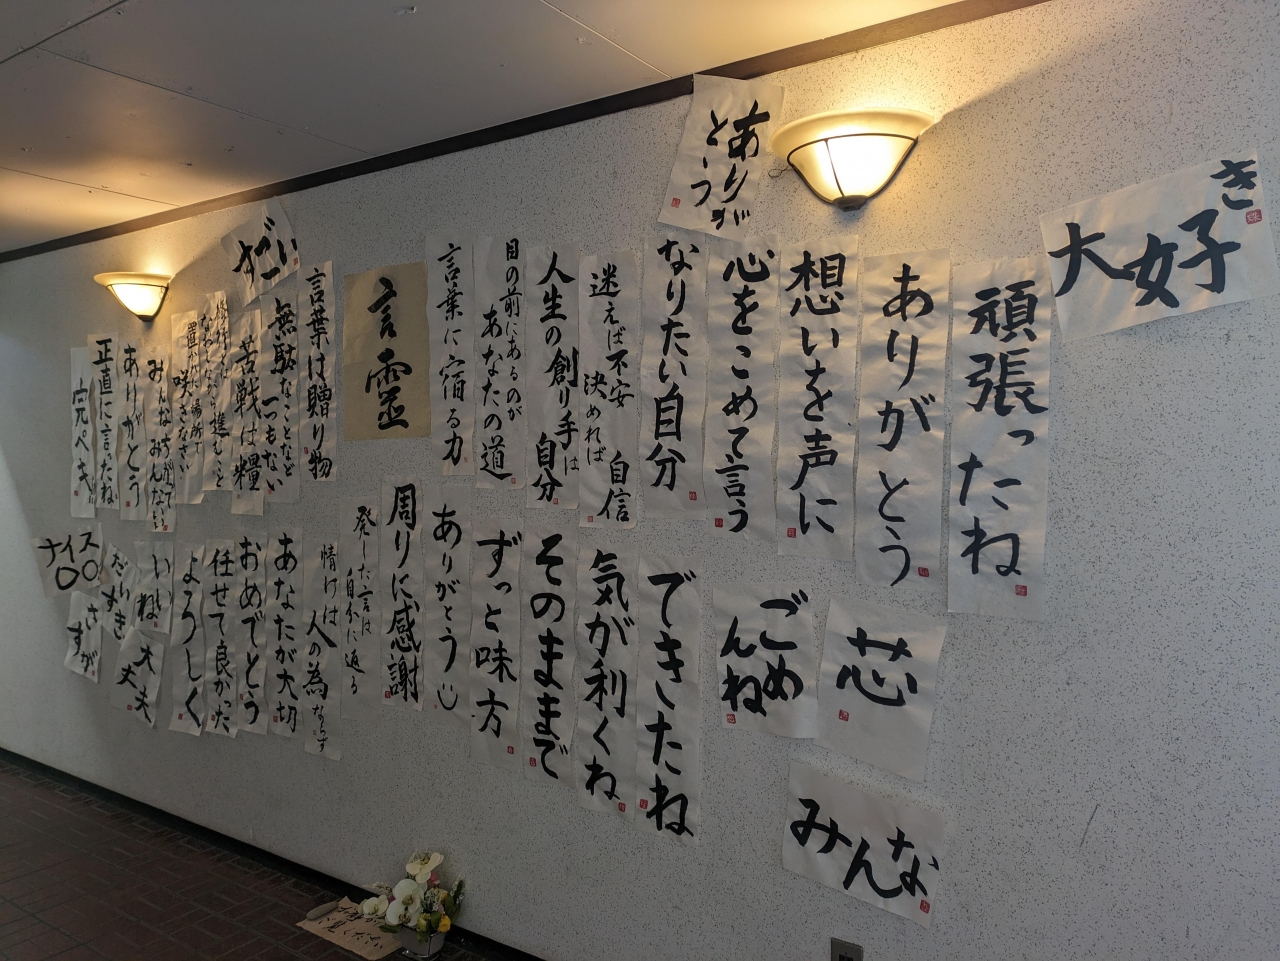 大好き
頑張ったね
ありがとう
想いを声に
心をこめて言う
ありがとう
なりたい自分
迷えば不安
決めれば
自信
人生の創り手は
自分
目の前にあるのが
あなたの道
言葉に宿る力
言霊
言葉は贈り物
すごい
無駄なことなど
一つもない
苦戦は糧
置かれた場所で
咲きなさい
みんなちがって
みんないい
ありがとう
正直に言たね
完ペキ
みんな
芯
ごめ
んね
できたね
気が利くね
そのままで
ずっと味方
ありがとう
周りに感謝
発した言は
自分に返る
情けは
人の為ならず
あなたが大切
おめでとう
任せて良かった
よろしく
いいね
大丈夫
だいすき
ナイス
さすが